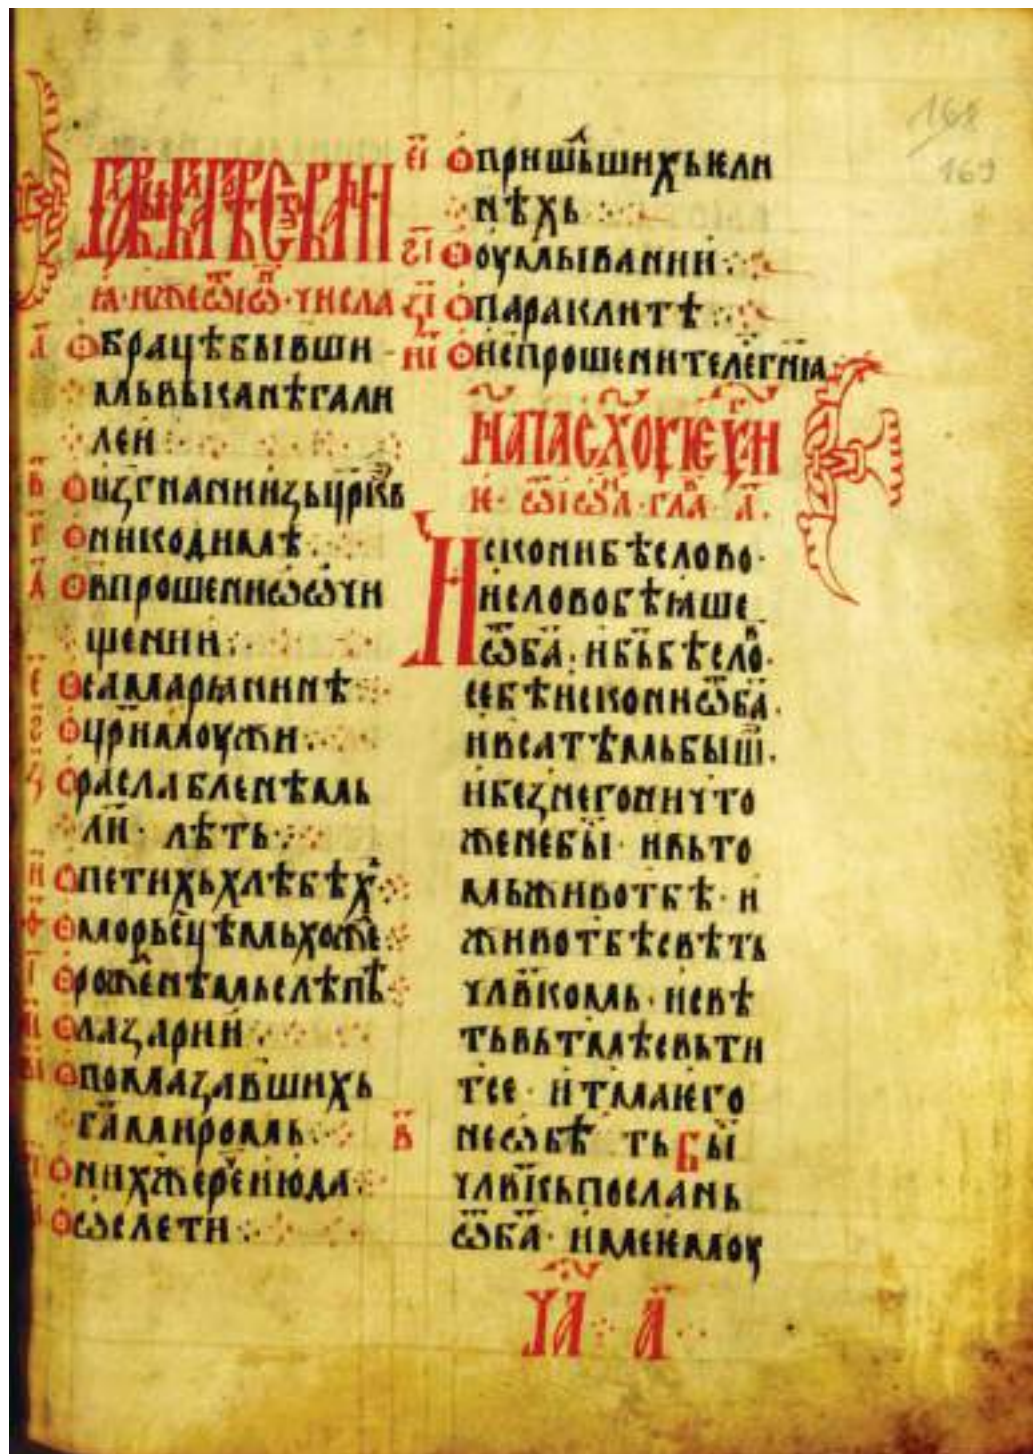 168
169
ꙗ · иже ѿ іѡ · числа
а҃ О брацѣ бывши
мь вь кана галі
леи
в҃ О изгнании изь црⷦ҇ве
г҃ О никодимѣ
д҃ О впрошении ѡ ѡчи
щении
е҃ О самарꙗнинѣ
ѕ҃ О цр҃и моужи
з҃ О раслабленѣмь
л҃и · лѣть
и҃ О петихь хлѣбѣхⸯ
ѳ҃ О морьсцѣмь хожⷣе
і҃ О рожⷣенѣмь слѣпѣ
а҃і О лазарии
в҃і О помазавшихь
га҃ миромь
г҃і О нихже реⷱ҇ еиюда
д҃і О ѡслети
е҃і О пришⷣьшихь іели
нѣхь
ѕ҃і О оумывании
з҃і О параклитѣ
и҃і О непрошени телегн҃іа
на пасхоу іеⷡ҇г҃ли
іе · ѿ іѡⷩ҇а · глаⷡ҇ · а҃ ·
Искони бѣ слово ·
и слово бѣ ꙗше
ѿ ба҃ · и бь҃ бѣ слоⷡ҇ ·
се бѣ искони ѿ ба҃ ·
и вса тѣмь быш҃ ·
и без него ничто
же не бы҃ · и вь то
мь живот бѣ · и
живот бѣ свѣть
чл҃вкомь · и свѣ
ть вь тмѣ свьти
тсе · и тма іего
в҃ не ѡбѣ ть Бы҃
чл҃вкь послань
ѿ ба҃ · име іемоу
ча҃ · а҃